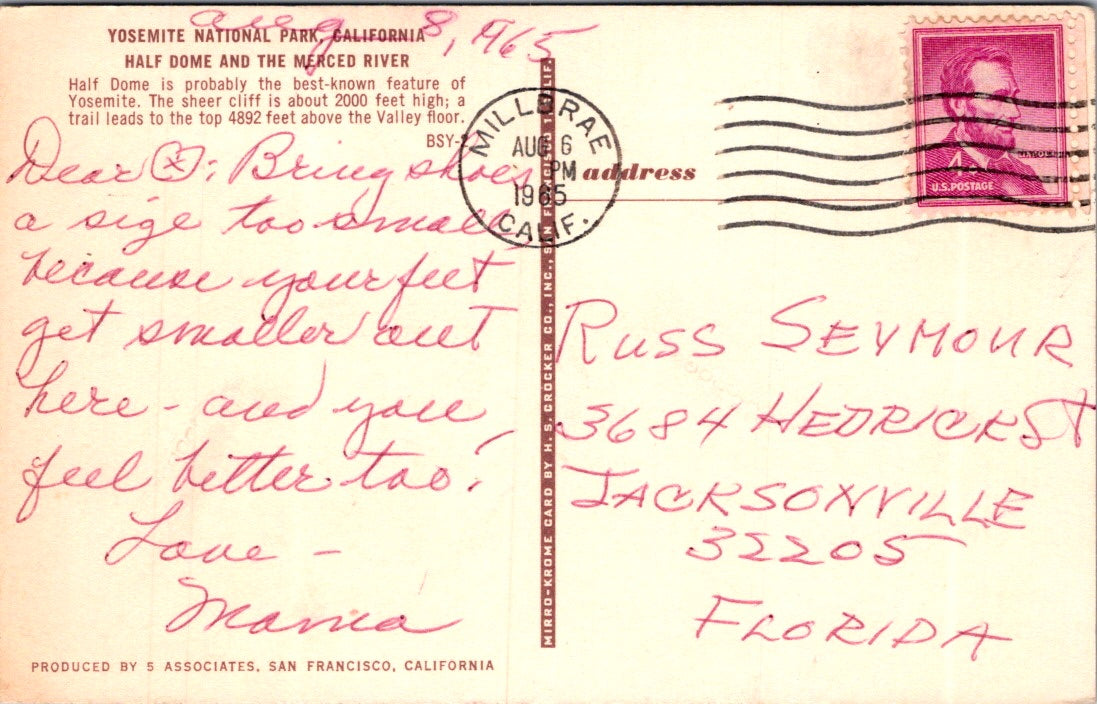 Aug 8, 1965
YOSEMITE NATIONAL PARK, CALIFORNIA
HALF DOME AND THE MERCED RIVER
Half Dome is probably the best-known feature of
Yosemite. The sheer cliff is about 2000 feet high; a
trail leads to the top 4892 feet above the Valley floor.
BSY-
Dear : Bring shoes
a size too small
because your feet
get smaller out
here - and you
feel better too!
Love -
Mama
PRODUCED BY 5 ASSOCIATES, SAN FRANCISCO, CALIFORNIA
MIRRO-KROME CARD BY H. S. CROCKER CO., INC., SAN F CALIF.
MILLBRAE
AUG 6
PM
1965
CALIF.
address
4
U.S. POSTAGE
RUSS SEYMOUR
3684 HEDRICK ST
JACKSONVILLE
32205
FLORIDA